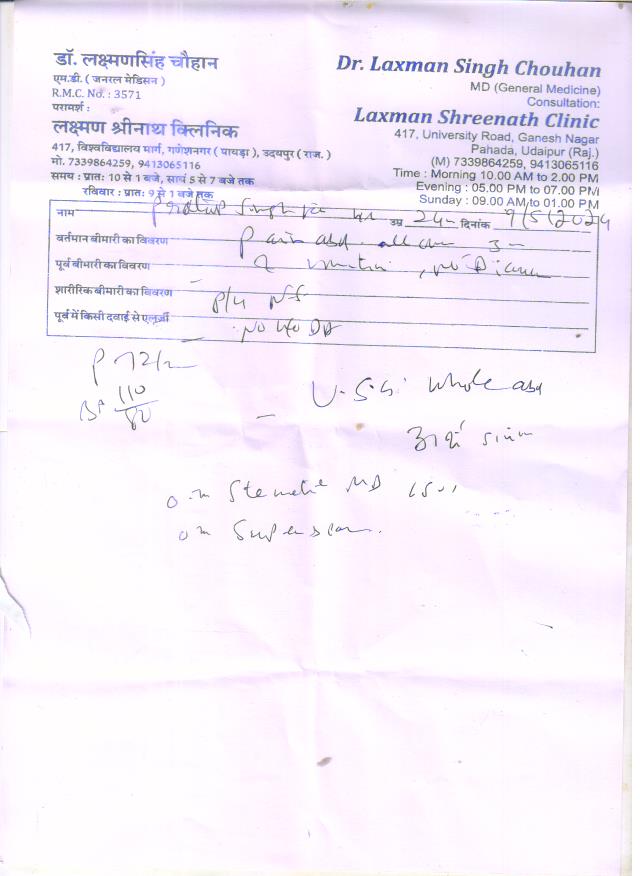 डॉ. लक्ष्मणसिंह चौहान
एम.डी. ( जनरल मेडिसन )
R.M.C. No. : 3571
परामर्श :
लक्ष्मण श्रीनाथ क्लिनिक
417, विश्वविद्यालय मार्ग, गणेशनगर ( पायड़ा ), उदयपुर ( राज. )
मो. 7339864259, 9413065116
समय : प्रातः 10 से 1 बजे, सायं 5 से 7 बजे तक
रविवार : प्रातः 9 से 1 बजे तक
Dr. Laxman Singh Chouhan
MD (General Medicine)
Consultation:
Laxman Shreenath Clinic
417, University Road, Ganesh Nagar
Pahada, Udaipur (Raj.)
(M) 7339864259, 9413065116
Time : Morning 10.00 AM to 2.00 PM
Evening : 05.00 PM to 07.00 PM
Sunday : 09.00 AM to 01.00 PM
नाम Singh उम्र 24 दिनांक 9/5/2024
वर्तमान बीमारी का विवरण Pain abd
पूर्व बीमारी का विवरण
शारीरिक बीमारी का विवरण
पूर्व में किसी दवाई से एलर्जी
P 72/
BP 110/80
U.S.G. whole abd
MD